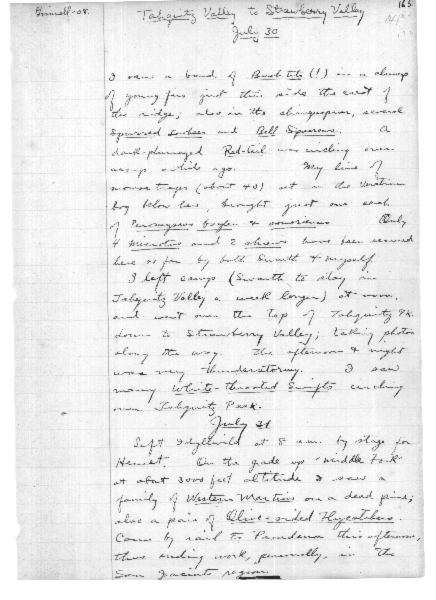 Grinnell-08.
163
Tahquitz Valley to Strawberry Valley
July 30
I saw a band of Bush-tits (!) in a clump
of young firs just this side the crest of
the ridge; also in the chinquapin, several
Spurred towhees and Bell Sparrows. A
dark-plumaged Red-tail was circling over
camp a while ago. My line of
mouse traps (about 40) set in the Veratrum
bog below here, brought just one each
of Peromyscus boylei & sonoriensis Only
4 microtus and 2 shrews have been secured
here so far by both Swarth & myself.
I left camp (Swarth to stay in
Tahquitz Valley a week longer) at noon,
and went over the top of Tahquitz Pk.
down to Strawberry Valley; taking photos
along the way. The afternoon & night
was very thunderstormy. I saw
many White-throated Swifts circling
over Tahquitz Peak.
July 31
Left Idyllwild at 8 a.m. by stage for
Hemet. On the grade up "middle Fork"
at about 3000 feet altitude I saw a
family of Western Martins on a dead pine;
also a pair of Olive-sided Flycatchers.
Came by rail to Pasadena this afternoon,
thus ending work, personally, in the
San Jacinto region.